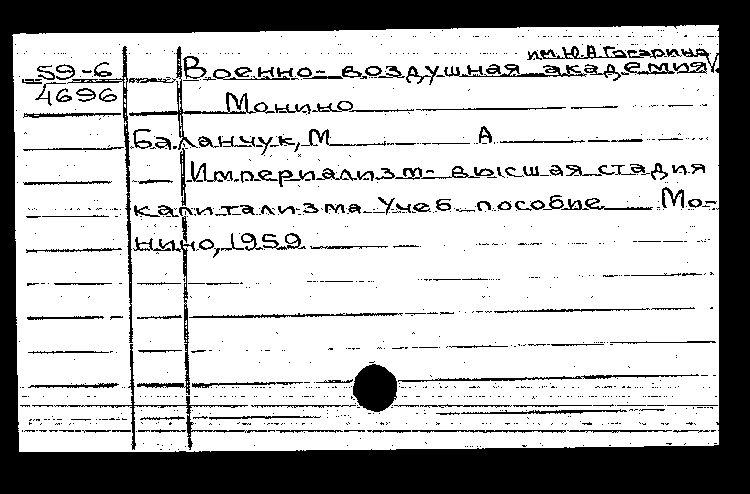 им. Ю.А. Гагарина
59-6 Военно-воздушная академия
4696 Монино
Баланчук, М А
Империализм- высшая стадия
капитализма Учеб. пособие Мо-
нино, 1959